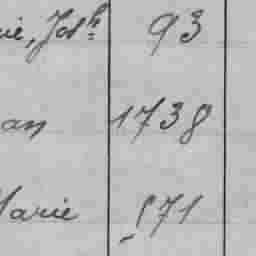 rie, Josh 93
an 1738
Marie 871